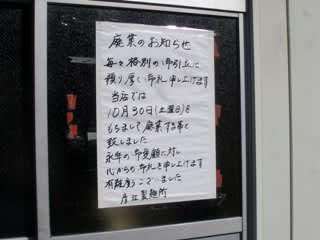 廃業のお知らせ
毎々格別の御引立に
預り厚く御礼申し上げます
当店では
10月30日(土曜日)を
もちまして廃業する事と
致しました
永年の御愛顧に対し
心からの御礼を申し上げます
有難度うございました
製麺所